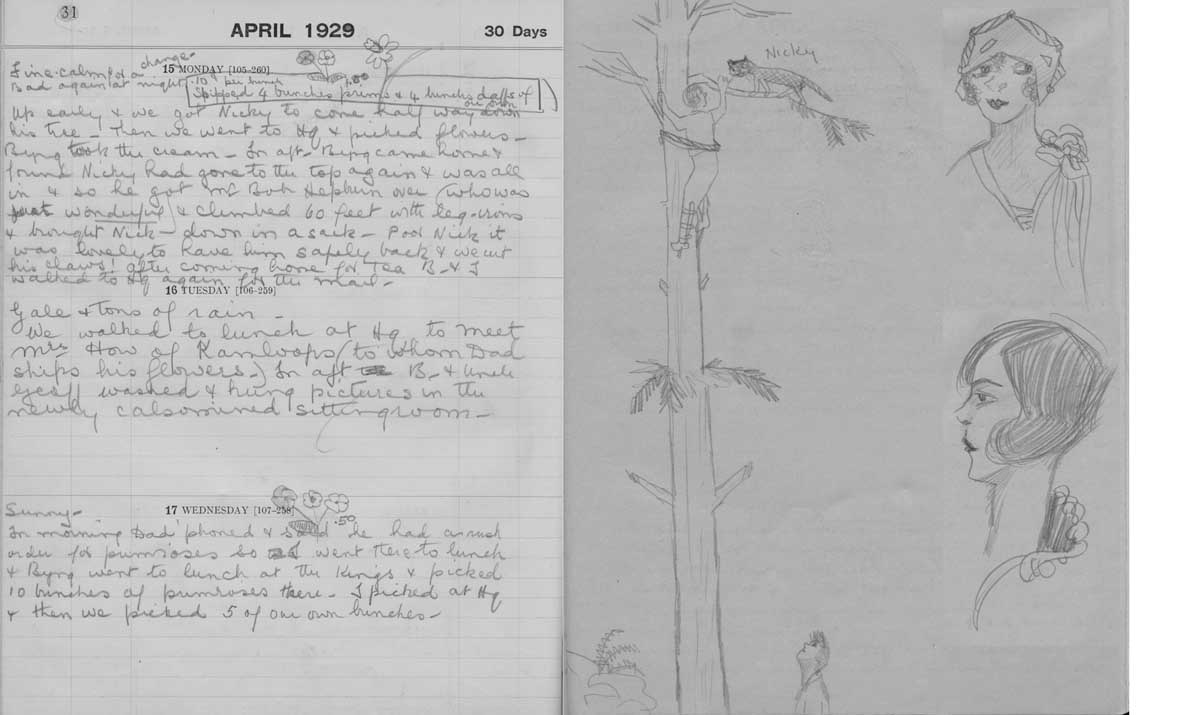 31
APRIL 1929 30 Days
Fine & calm for a change -
Bad again at night
15 MONDAY [105-260]
.10 per bunch .80
Shipped 4 bunches prims & 4 bunches daffs of
our own
Up early & we got Nicky to come half way down
his tree - Then we went to Hq & picked flowers -
Byng took the cream - In aft - Byng came home &
found Nicky had gone to the top again & was all
in & so he got Mr Bob Hepburn over (who was
just wonderful) & climbed 60 feet with leg-irons
& brought Nick - down in a sack - Poor Nick it
was lovely to have him safely back & we cut
his claws! After coming home for Tea B- & I
walked to Hq again for the mail -
16 TUESDAY [106-259]
Gale & tons of rain -
We walked to lunch at Hq to meet
Mrs How of Kamloops (to whom Dad
ships his flowers) In aft B- & Uncle
washed & hung pictures in the
newly calsomined sittingroom -
17 WEDNESDAY [107-258]
.50
Sunny -
In morning Dad 'phoned & said he had a rush
order for primroses so went there to lunch
& Byng went to lunch at the Kings & picked
10 bunches of primroses there - I picked at Hq
& then we picked 5 of our own bunches -
Nicky